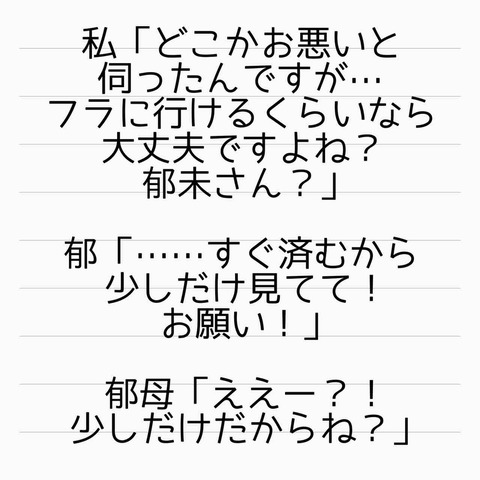 私「どこかお悪いと
伺ったんですが…
フラに行けるくらいなら
大丈夫ですよね？
郁未さん？」
郁「……すぐ済むから
少しだけ見てて！
お願い！」
郁母「ええー？！
少しだけだからね？」